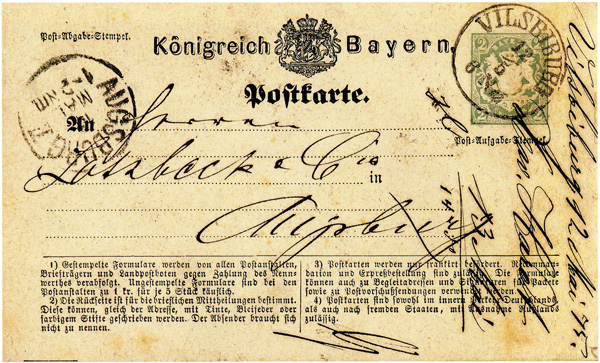 Post-Abgabe-Stempel.
Königreich Bayern.
VILSBIBURG
12
Postkarte.
AUGSBURG 7
MAI
NM
An Herren
Post-Aufgabe-Stempel.
Lotzbeck & Cie
in
Augsburg
Vilsbiburg 12 Mai 75.
1) Gestempelte Formulare werden von allen Postanstalten,
Briefträgern und Landpostboten gegen Zahlung des Nenn-
werthes verabfolgt. Ungestempelte Formulare sind bei den
Postanstalten zu 1 kr. für je 5 Stück käuflich.
2) Die Rückseite ist für die brieflichen Mittheilungen bestimmt.
Diese können, gleich der Adresse, mit Tinte, Bleifeder oder
farbigem Stifte geschrieben werden. Der Absender braucht sich
nicht zu nennen.
3) Postkarten werden nur frankirt befördert. Rekomman-
dation und Expreßbestellung sind zulässig. Die Formulare
können auch zu Begleitadressen und Signaturen für Packete
sowie zu Postvorschußsendungen verwendet werden.
4) Postkarten sind sowohl im innern Verkehr Deutschlands
als auch nach fremden Staaten, mit Ausnahme Rußlands
zulässig.